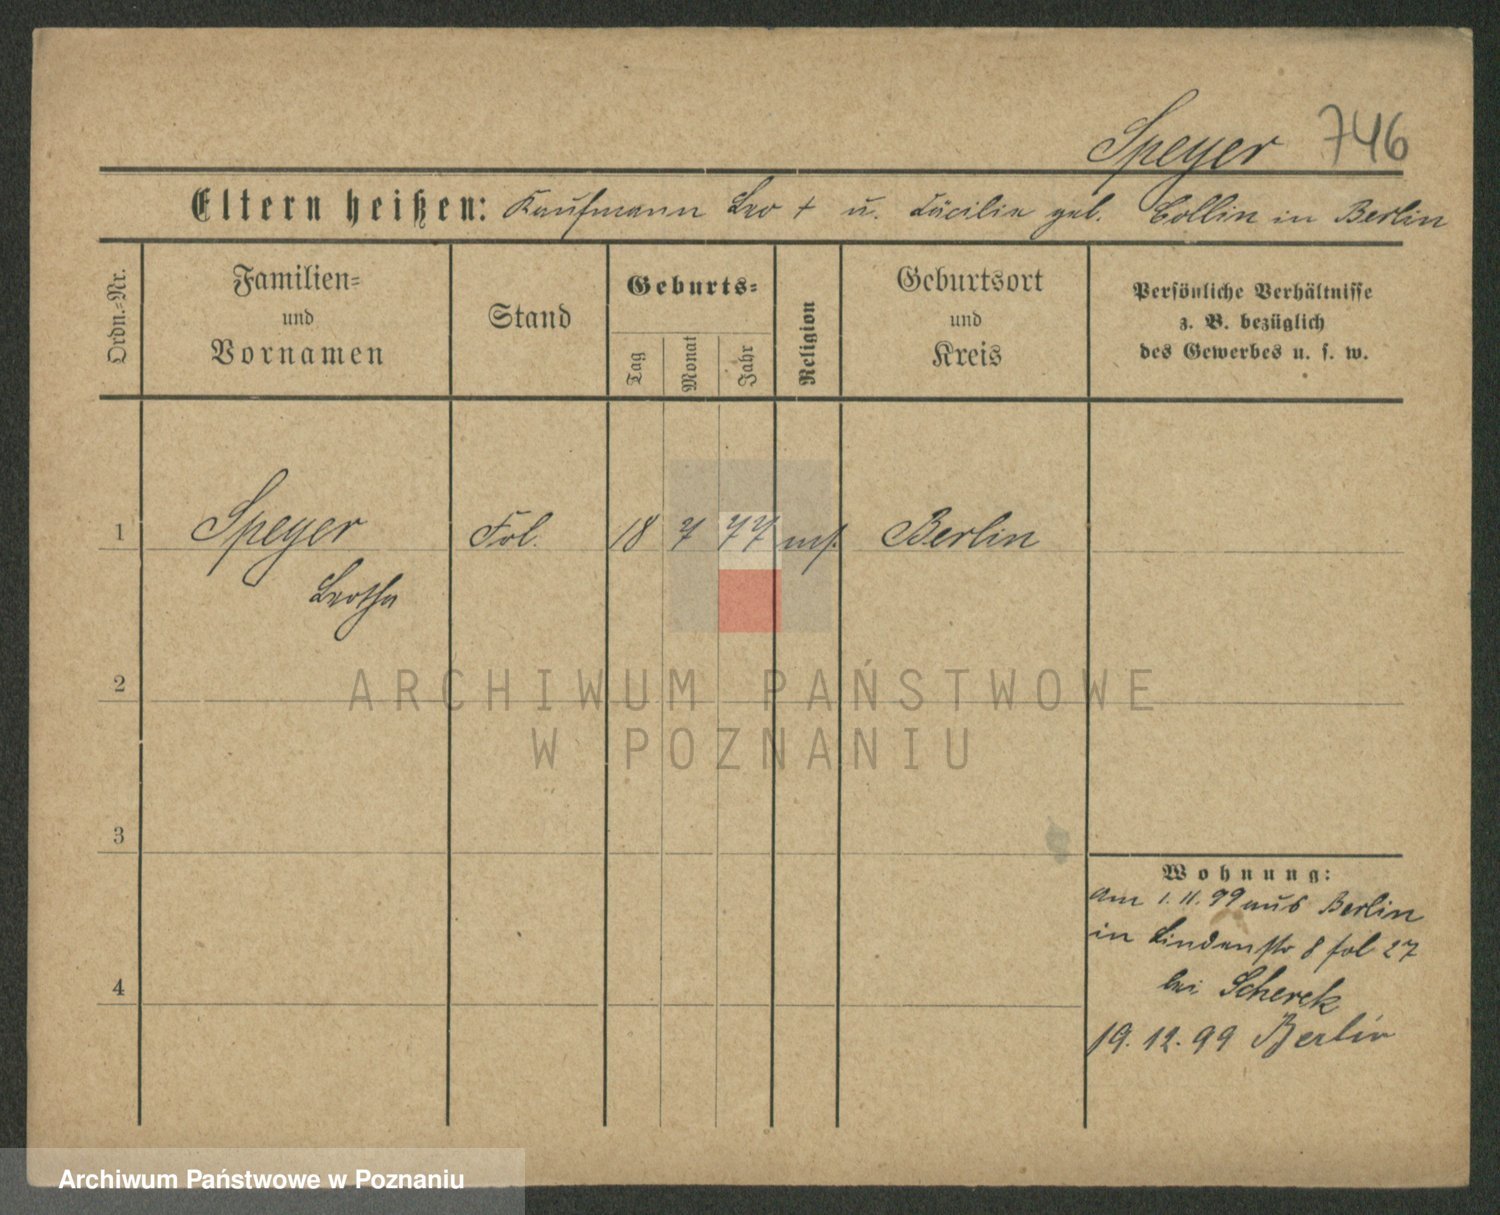 Speyer 746
Eltern heißen: Kaufmann Leo + u. Cäcilie geb. Collin in Berlin
Ordn.-Nr.
Familien-
und
Vornamen
Stand
Geburts-
Tag
Monat
Jahr
Religion
Geburtsort
und
Kreis
Persönliche Verhältnisse
z. B. bezüglich
des Gewerbes u. s. w.
1 Speyer Frl. 18 7 77 mos. Berlin
2
3
4
Wohnung:
am 1. 11. 99 aus Berlin
in Lindenstr 8 fol 27
bei Scherek
19. 12. 99 Berlin
ARCHIWUM PAŃSTWOWE
W POZNANIU
Archiwum Państwowe w Poznaniu